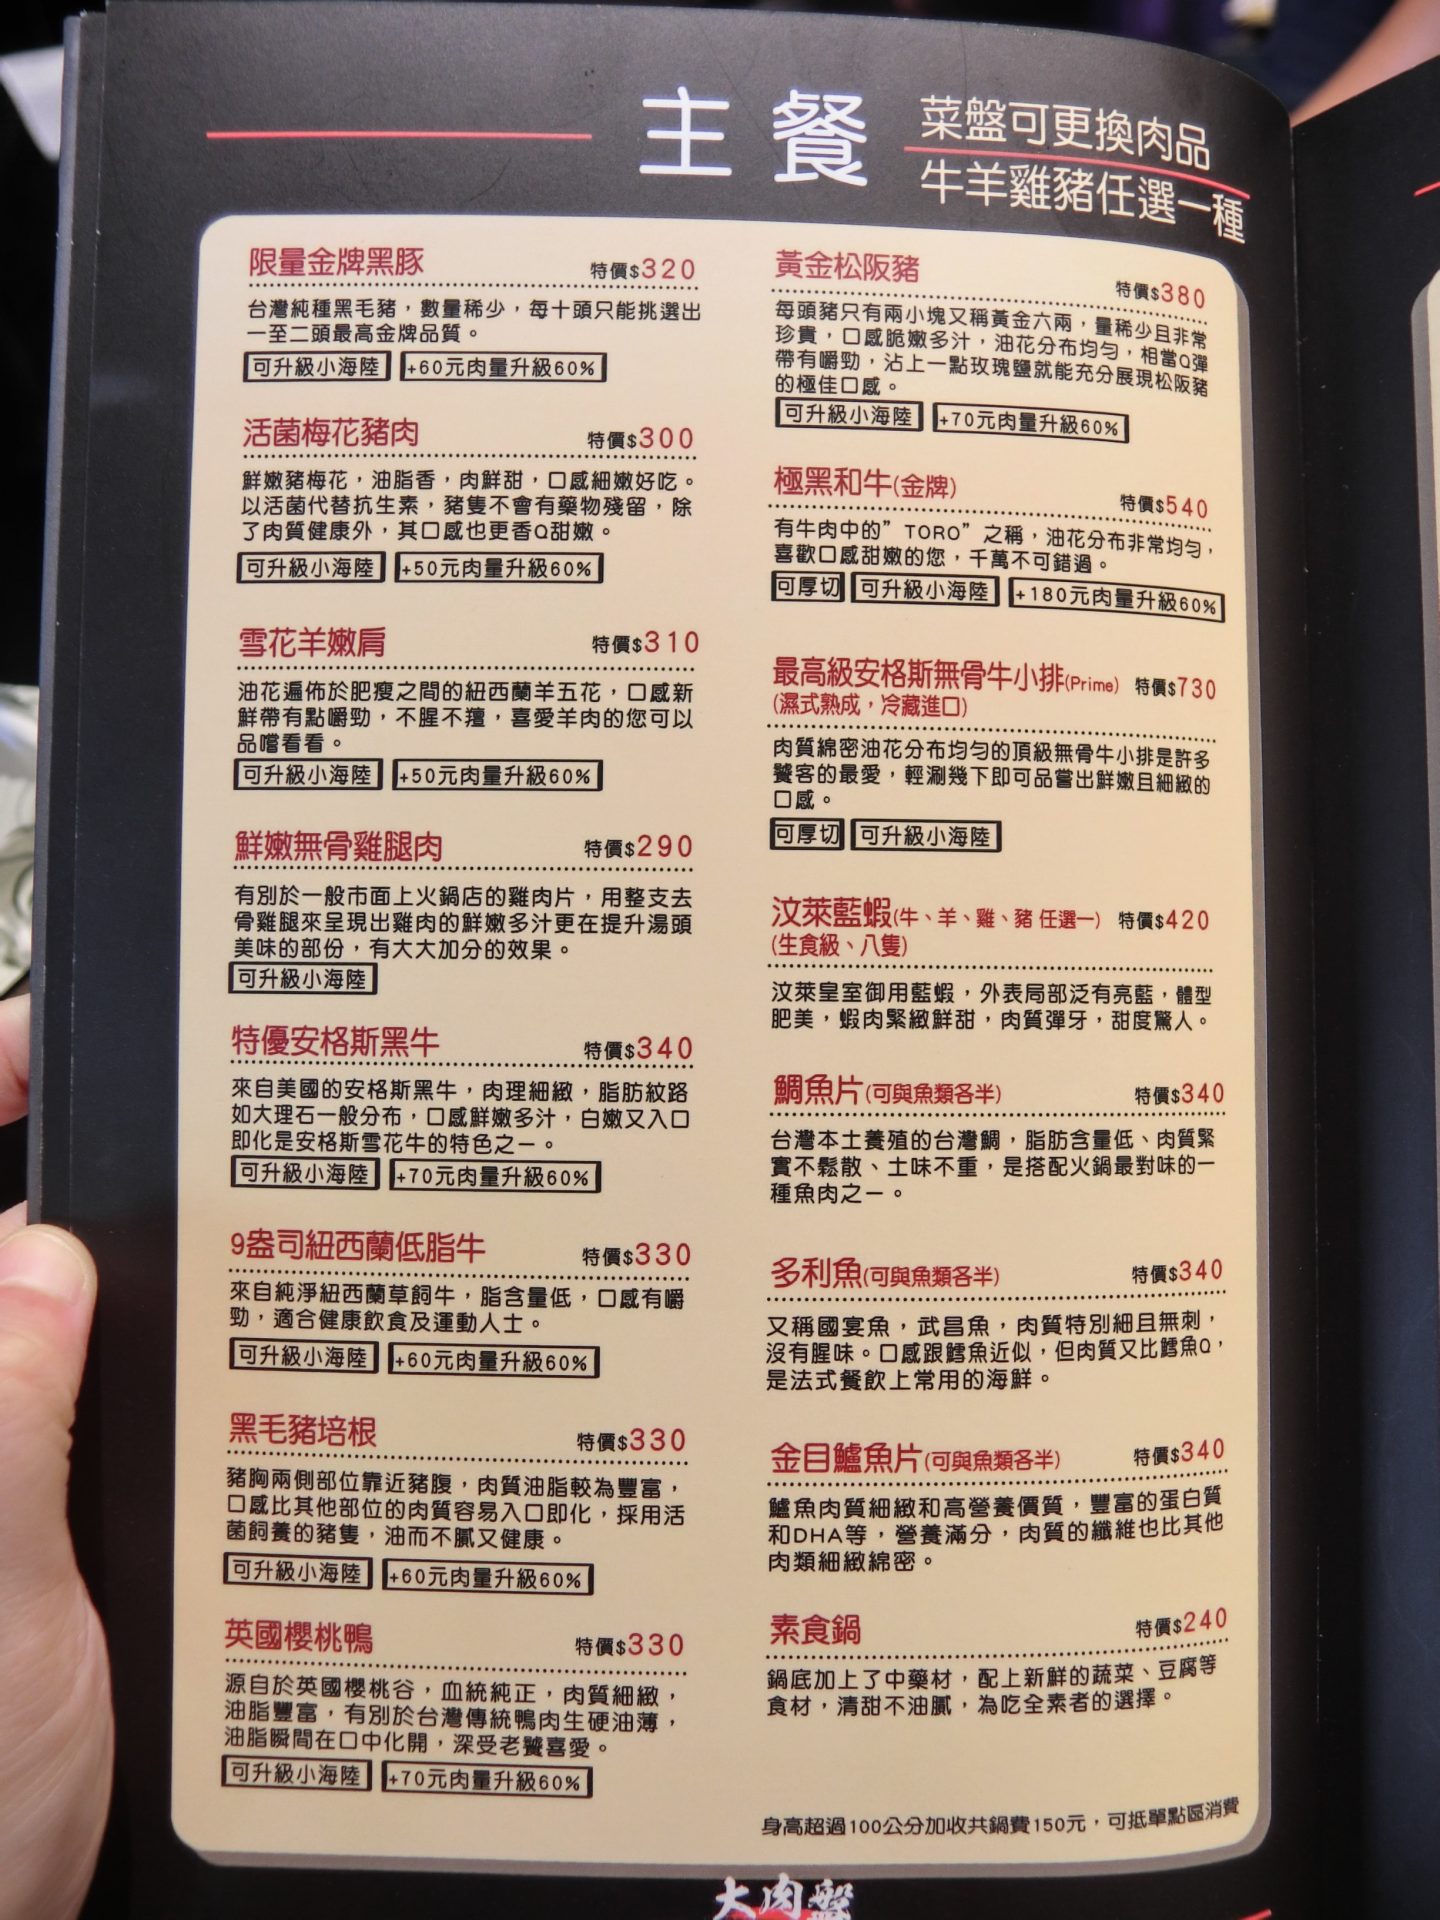 主餐
菜盤可更換肉品
牛羊雞豬任選一種
限量金牌黑豚 特價$320
台灣純種黑毛豬，數量稀少，每十頭只能挑選出
一至二頭最高金牌品質。
可升級小海陸 +60元肉量升級60%
活菌梅花豬肉 特價$300
鮮嫩豬梅花，油脂香，肉鮮甜，口感細嫩好吃。
以活菌代替抗生素，豬隻不會有藥物殘留，除
了肉質健康外，其口感也更香Q甜嫩。
可升級小海陸 +50元肉量升級60%
雪花羊嫩肩 特價$310
油花遍佈於肥瘦之間的紐西蘭羊五花，口感新
鮮帶有點嚼勁，不腥不羶，喜愛羊肉的您可以
品嚐看看。
可升級小海陸 +50元肉量升級60%
鮮嫩無骨雞腿肉 特價$290
有別於一般市面上火鍋店的雞肉片，用整支去
骨雞腿來呈現出雞肉的鮮嫩多汁更在提升湯頭
美味的部份，有大大加分的效果。
可升級小海陸
特優安格斯黑牛 特價$340
來自美國的安格斯黑牛，肉理細緻，脂肪紋路
如大理石一般分布，口感鮮嫩多汁，白嫩又入口
即化是安格斯雪花牛的特色之一。
可升級小海陸 +70元肉量升級60%
9盎司紐西蘭低脂牛 特價$330
來自純淨紐西蘭草飼牛，脂含量低，口感有嚼
勁，適合健康飲食及運動人士。
可升級小海陸 +60元肉量升級60%
黑毛豬培根 特價$330
豬胸兩側部位靠近豬腹，肉質油脂較為豐富，
口感比其他部位的肉質容易入口即化，採用活
菌飼養的豬隻，油而不膩又健康。
可升級小海陸 +60元肉量升級60%
英國櫻桃鴨 特價$330
源自於英國櫻桃谷，血統純正，肉質細緻，
油脂豐富，有別於台灣傳統鴨肉生硬油薄，
油脂瞬間在口中化開，深受老饕喜愛。
可升級小海陸 +70元肉量升級60%
黃金松阪豬 特價$380
每頭豬只有兩小塊又稱黃金六兩，量稀少且非常
珍貴，口感脆嫩多汁，油花分布均勻，相當Q彈
帶有嚼勁，沾上一點玫瑰鹽就能充分展現松阪豬
的極佳口感。
可升級小海陸 +70元肉量升級60%
極黑和牛(金牌) 特價$540
有牛肉中的”TORO”之稱，油花分布非常均勻，
喜歡口感甜嫩的您，千萬不可錯過。
可厚切 可升級小海陸 +180元肉量升級60%
最高級安格斯無骨牛小排(Prime) 特價$730
(濕式熟成，冷藏進口)
肉質綿密油花分布均勻的頂級無骨牛小排是許多
饕客的最愛，輕涮幾下即可品嘗出鮮嫩且細緻的
口感。
可厚切 可升級小海陸
汶萊藍蝦(牛、羊、雞、豬 任選一) 特價$420
(生食級、八隻)
汶萊皇室御用藍蝦，外表局部泛有亮藍，體型
肥美，蝦肉緊緻鮮甜，肉質彈牙，甜度驚人。
鯛魚片(可與魚類各半) 特價$340
台灣本土養殖的台灣鯛，脂肪含量低、肉質緊
實不鬆散、土味不重，是搭配火鍋最對味的一
種魚肉之一。
多利魚(可與魚類各半) 特價$340
又稱國宴魚，武昌魚，肉質特別細且無刺，
沒有腥味。口感跟鱈魚近似，但肉質又比鱈魚Q，
是法式餐飲上常用的海鮮。
金目鱸魚片(可與魚類各半) 特價$340
鱸魚肉質細緻和高營養價質，豐富的蛋白質
和DHA等，營養滿分，肉質的纖維也比其他
肉類細緻綿密。
素食鍋 特價$240
鍋底加上了中藥材，配上新鮮的蔬菜、豆腐等
食材，清甜不油膩，為吃全素者的選擇。
身高超過100公分加收共鍋費150元，可抵單點區消費
大肉盤